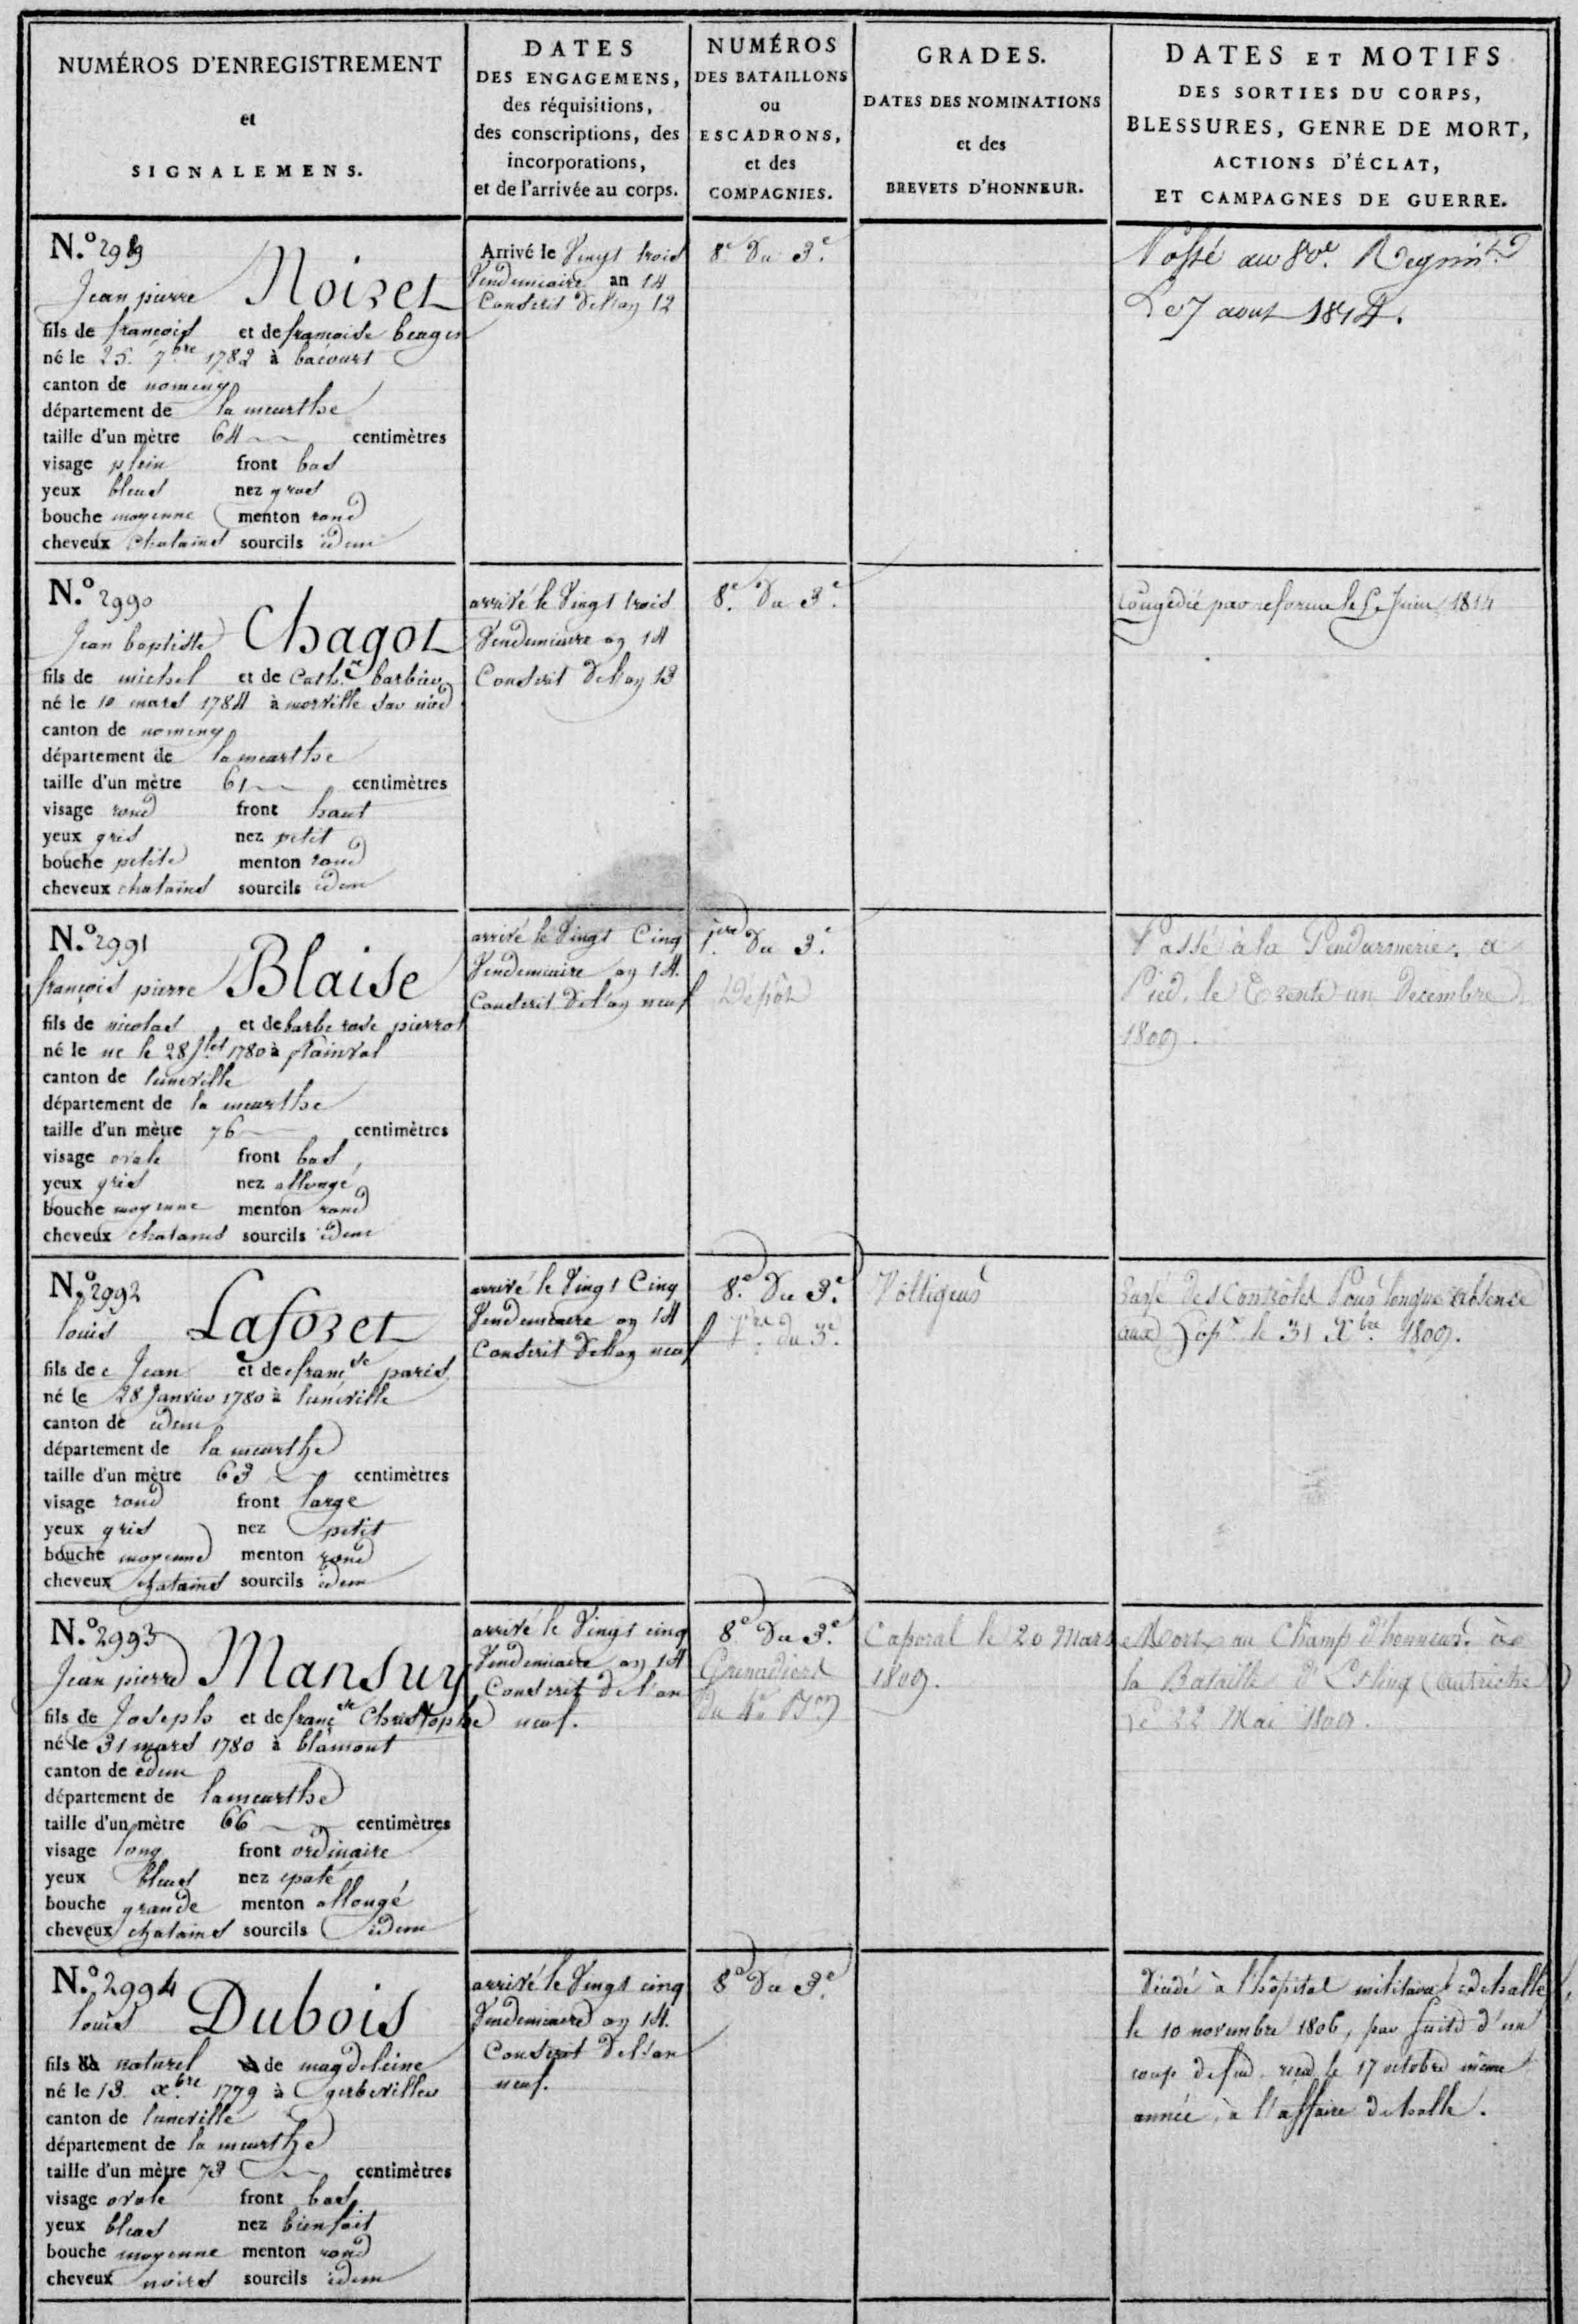 NUMÉROS D'ENREGISTREMENT
et
SIGNALEMENS.
DATES
DES ENGAGEMENS,
des réquisitions,
des conscriptions, des
incorporations,
et de l'arrivée au corps.
NUMÉROS
DES BATAILLONS
ou
ESCADRONS,
et des
COMPAGNIES.
GRADES.
DATES DES NOMINATIONS
et des
BREVETS D'HONNEUR.
DATES ET MOTIFS
DES SORTIES DU CORPS,
BLESSURES, GENRE DE MORT,
ACTIONS D'ÉCLAT,
ET CAMPAGNES DE GUERRE.
N.º 2989
Jean pierre Noizet
fils de françois et de françoise
né le 25. 7.bre 1782 à bacourt
canton de nomeny
département de la meurthe
taille d'un mètre 64 centimètres
visage plein front bas
yeux bleus nez gros
bouche moyenne menton rond
cheveux chatains sourcils idem
Arrivé le Vingt trois
Vendemiaire an 14
Conscrit de l'an 12
8.e Du 3.e
Passé au 80.e Regim.t
Le 7 aout 1814.
N.º 2990
Jean baptiste Chagot
fils de michel et de Cath.ne barbier
né le 10 mars 1784 à morville sur nied
canton de nomeny
département de la meurthe
taille d'un mètre 61 centimètres
visage rond front haut
yeux gris nez petit
bouche petite menton rond
cheveux chatains sourcils idem
arrivé le Vingt trois
Vendemiaire an 14
Conscrit de l'an 13
8.e Du 3.e
Congédié par reforme le 5 Juin 1814
N.º 2991
françois pierre Blaise
fils de nicolas et de barbe rose pierrot
né le ne le 28 J.let 1780 à flainval
canton de luneville
département de la meurthe
taille d'un mètre 76 centimètres
visage ovale front bas,
yeux gris nez allongé
bouche moyenne menton rond
cheveux chatains sourcils idem
arrivé le Vingt Cinq
Vendemiaire an 14.
Conscrit de l'an neuf
1.ere Du 3.e
Dépôt
Passé à la Gendarmerie. a
Pied. le Trente un Decembre
1809.
N.º 2992
louis Laforet
fils de Jean et de franç.se paris
né le 28 Janvier 1780 à luneville
canton de idem
département de la meurthe
taille d'un mètre 63 centimètres
visage rond front large
yeux gris nez petit
bouche moyenne menton rond
cheveux chatains sourcils idem
arrivé le Vingt Cinq
Vendemiaire an 14
Conscrit de l'an neuf
8.e Du 3.e
V.re du 3.e
Voltigeur
Rayé des Contrôles Pour longue absence
aux hop.x le 31 X.bre 1809.
N.º 2993
Jean pierre Mansuy
fils de Joseph et de franç.se Christophe
né le 31 mars 1780 à blamont
canton de idem
département de la meurthe
taille d'un mètre 66 centimètres
visage long front ordinaire
yeux bleus nez epaté
bouche grande menton allongé
cheveux chatains sourcils idem
arrivé le Vingt cinq
Vendemiaire an 14
Conscrit de l'an
neuf.
8.e Du 3.e
Grenadiers
du 4.e B.on
Caporal le 20 Mars
1809.
Mort au Champ d'honneur. à
la Bataille d'Esling (autriche
Le 22 Mai 1809.
N.º 2994
louis Dubois
fils naturel de magdeleine
né le 13. x.bre 1779 à gerbeviller
canton de luneville
département de la meurthe
taille d'un mètre 73 centimètres
visage ovale front bas
yeux bleus nez bien fait
bouche moyenne menton rond
cheveux noirs sourcils idem
arrivé le Vingt cinq
Vendemiaire an 14.
Conscrit de l'an
neuf.
8.e Du 3.e
Décédé à l'hôpital militaire de halle,
le 10 novembre 1806, par suite d'un
coup de feu reçu le 17 octobre même
année, à l'affaire de halle.